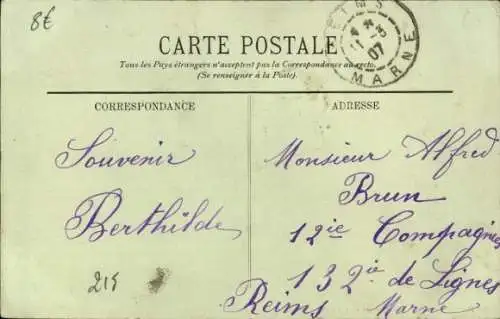 8€
CARTE POSTALE
Tous les Pays étrangers n'acceptent pas la Correspondance au recto.
(Se renseigner à la Poste).
CORRESPONDANCE
ADRESSE
Souvenir
Berthilde
215
Monsieur Alfred
Brun
12ie Compagnie
132ie de Lignes
Reims Marne
07
MARNE